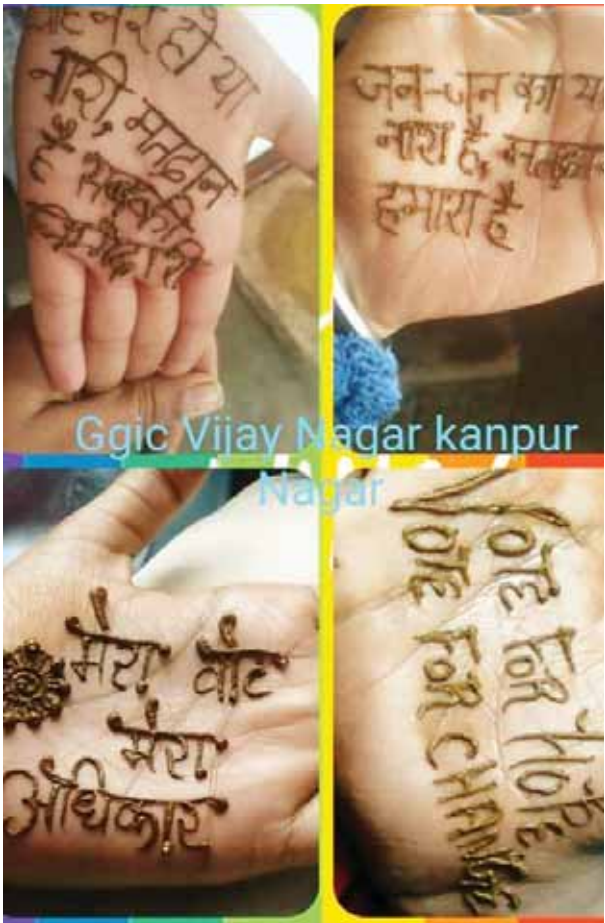 नर हो या
नारी, मतदान
है सबकी
जिम्मेदारी
जन-जन का य
नारा है, मतदान
हमारा है
Ggic Vijay Nagar kanpur
Nagar
मेरा वोट
मेरा
अधिकार
VOTE FOR HOPE
VOTE FOR CHANGE